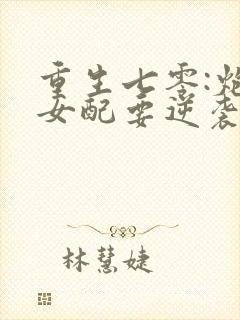 重生七零:炮
女配要逆袭
林慧婕